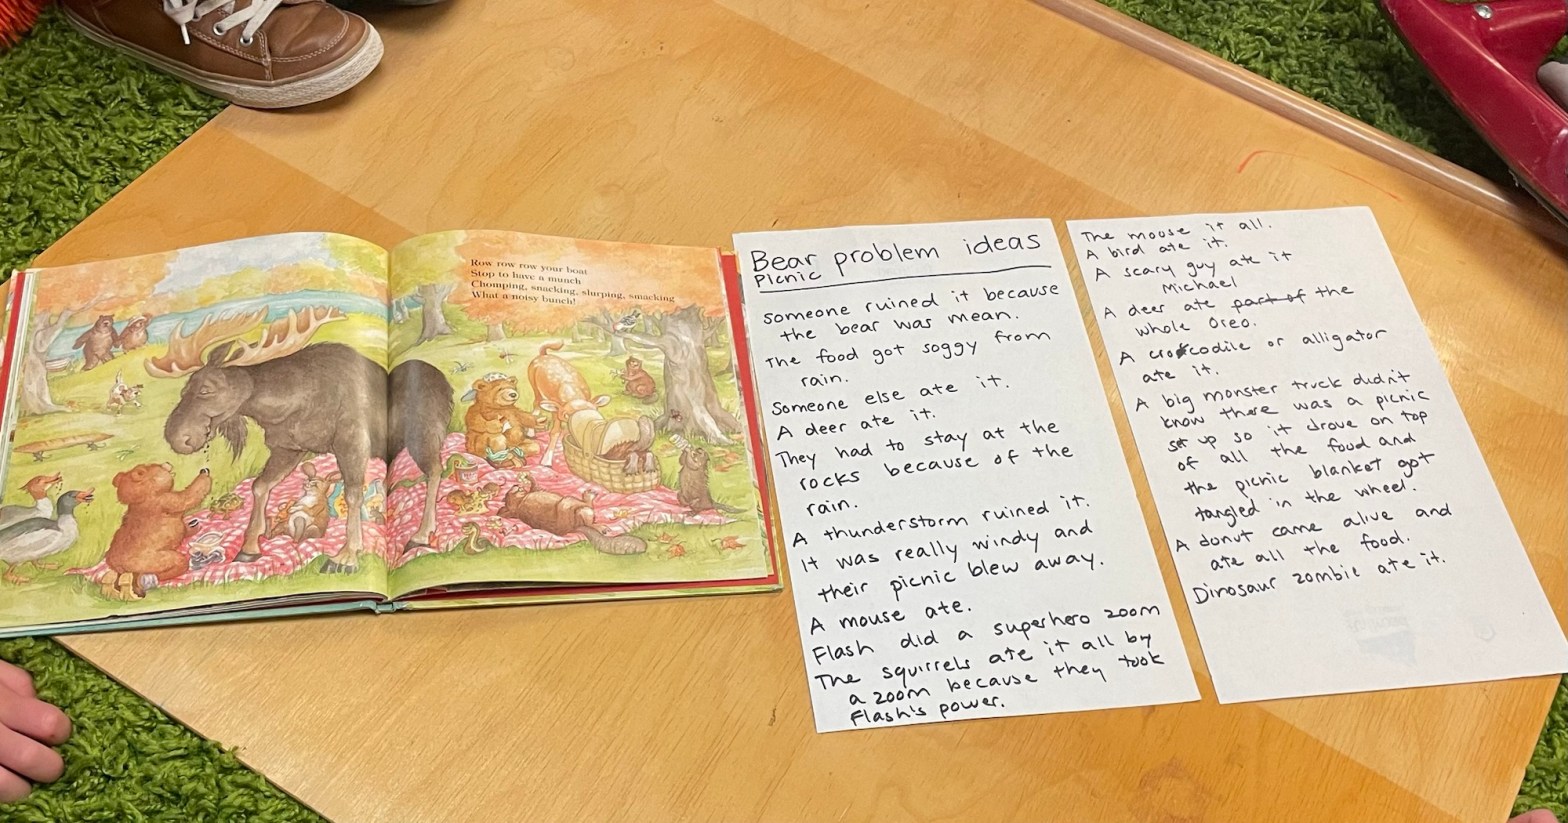 Row row row your boat
Stop to have a munch
Chomping, snacking, slurping, smacking
What a noisy bunch!
Bear problem ideas
Picnic
someone ruined it because
the bear was mean.
The food got soggy from
rain.
Someone else ate it.
A deer ate it.
They had to stay at the
rocks because of the
rain.
A thunderstorm ruined it.
It was really windy and
their picnic blew away.
A mouse ate.
Flash did a superhero zoom
The squirrels ate it all by
a zoom because they took
Flash's power.
The mouse it all.
A bird ate it.
A scary guy ate it
Michael
A deer ate part of the
whole oreo.
A crocodile or alligator
ate it.
A big monster truck didn't
know there was a picnic
set up so it drove on top
of all the food and
the picnic blanket got
tangled in the wheel.
A donut came alive and
ate all the food.
Dinosaur zombie ate it.